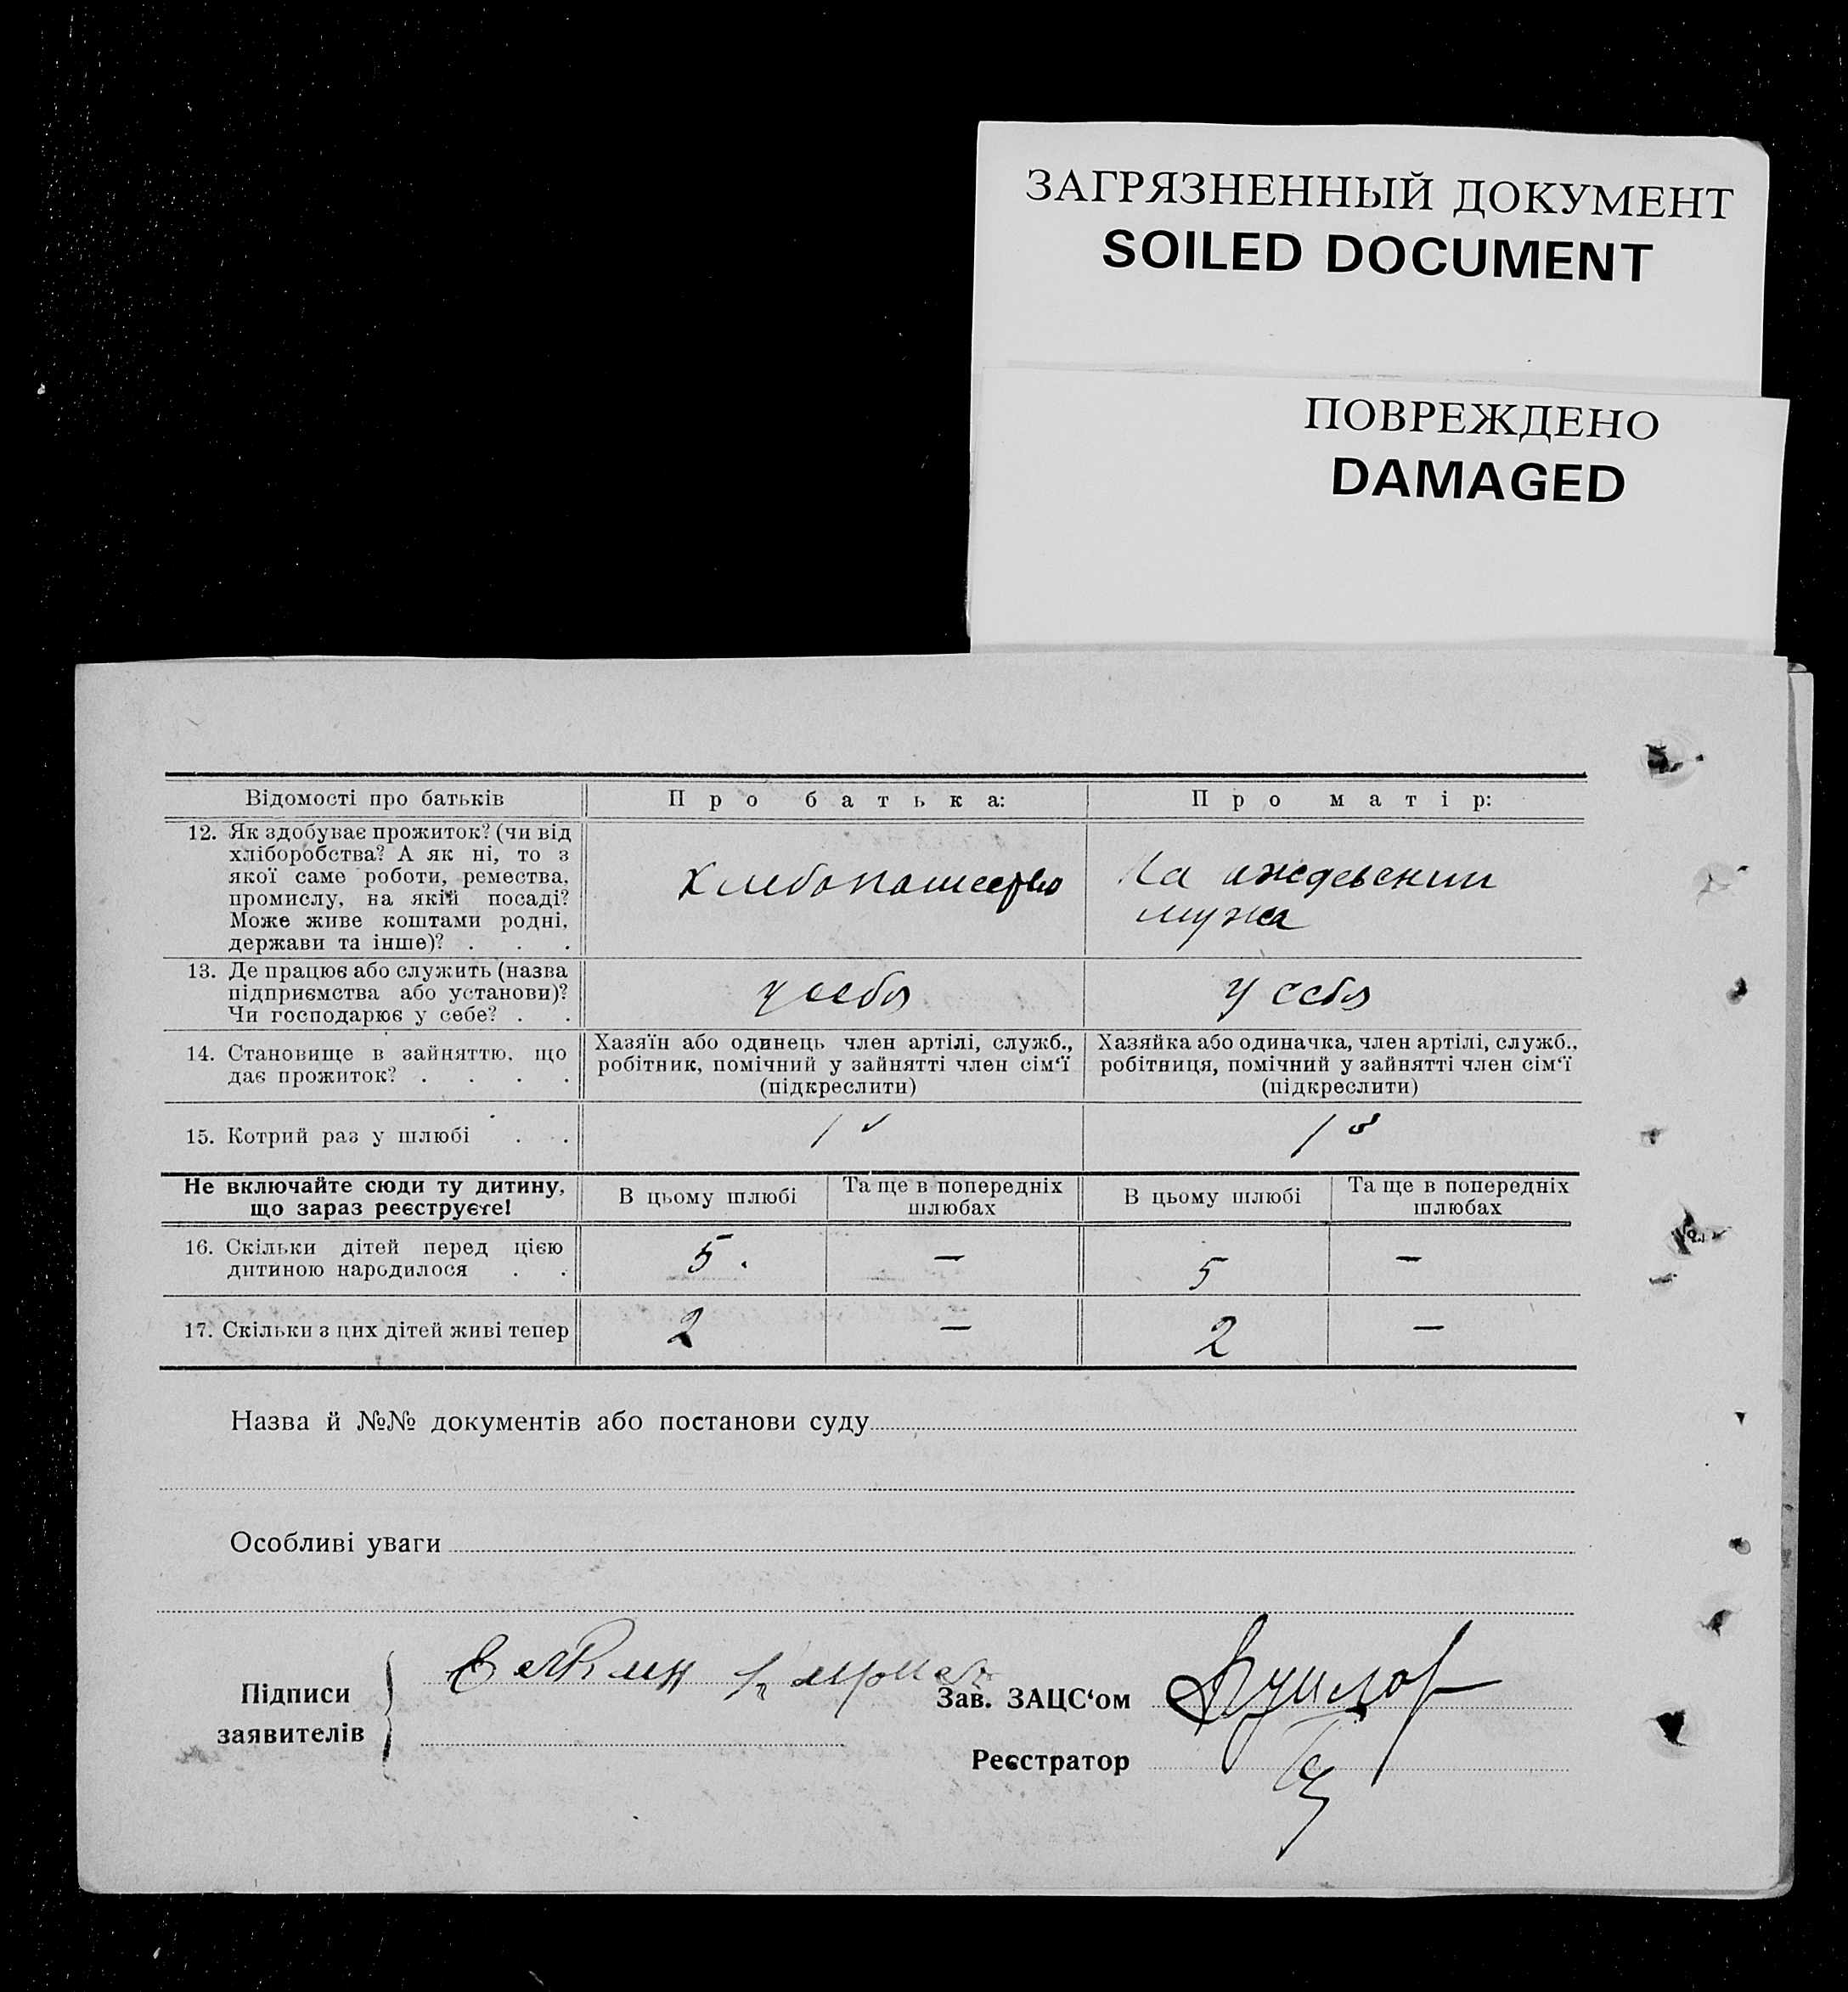 ЗАГРЯЗНЕННЫЙ ДОКУМЕНТ
SOILED DOCUMENT
ПОВРЕЖДЕНО
DAMAGED
Відомості про батьків
Про батька:
Про матір:
12. Як здобуває прожиток? (чи від
хліборобства? А як ні, то з
якої саме роботи, ремества,
промислу, на якій посаді?
Може живе коштами родні,
держави та інше)? . . .
Хлебопашество
На иждевении
мужа
13. Де працює або служить (назва
підприємства або установи)?
Чи господарює у себе? . .
у себя
у себя
14. Становище в зайняттю, що
дає прожиток? . . . .
Хазяїн або одинець член артілі, служб.,
робітник, помічний у зайнятті член сім‘ї
(підкреслити)
Хазяйка або одиначка, член артілі, служб.,
робітниця, помічний у зайнятті член сім‘ї
(підкреслити)
15. Котрий раз у шлюбі . .
1
1
Не включайте сюди ту дитину,
що зараз реєструєте!
В цьому шлюбі
Та ще в попередніх
шлюбах
В цьому шлюбі
Та ще в попередніх
шлюбах
16. Скільки дітей перед цією
дитиною народилося . .
5.
—
5
—
17. Скільки з цих дітей живі тепер
2
—
2
—
Назва й №№ документів або постанови суду
Особливі уваги
Підписи
заявителів
Зав. ЗАЦС‘ом
Реєстратор